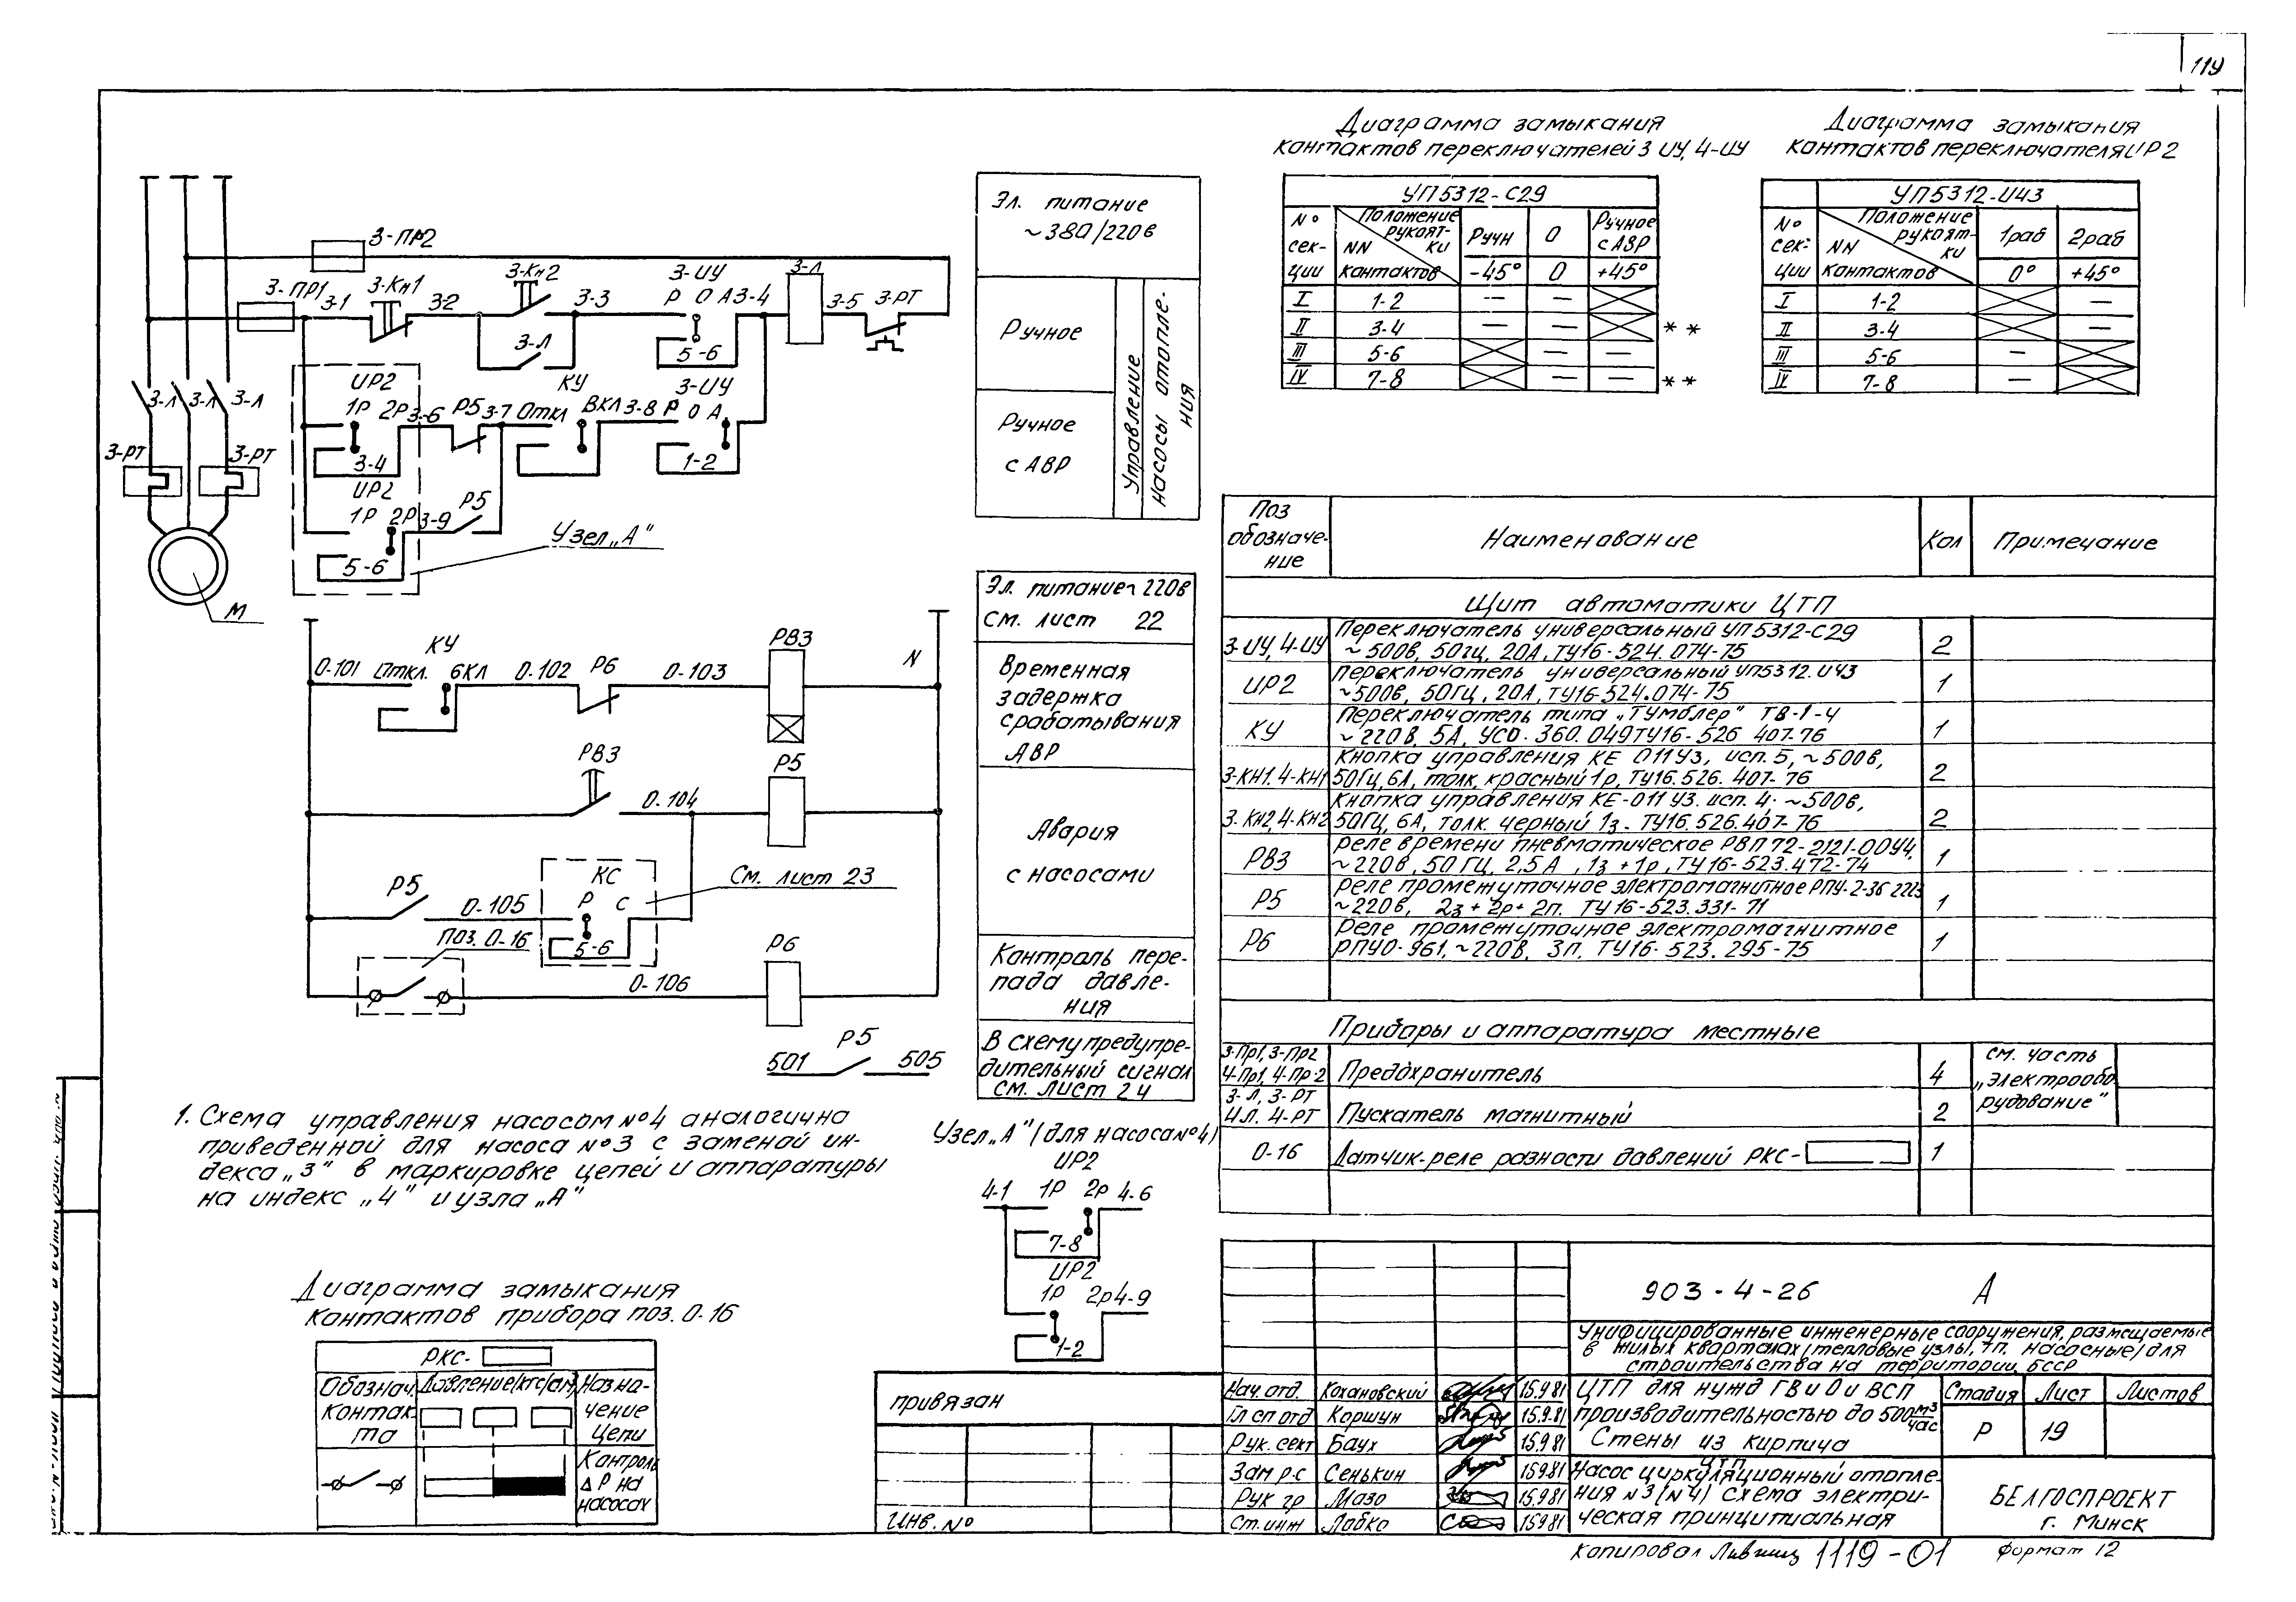 119
Диаграмма замыкания
контактов переключателей 3 ИУ, 4-ИУ
УП5312-С29
N° сек-ции
Положение рукоят-ки
NN контактов
Ручн
0
Ручное с АВР
-45°
0
+45°
I 1-2 — —
II 3-4 — — **
III 5-6 — —
IV 7-8 — — **
Диаграмма замыкания
контактов переключателя ИР2
УП5312-И43
N° сек-ции
Положение рукоят-ки
NN контактов
1раб
2раб
0°
+45°
I 1-2 —
II 3-4 —
III 5-6 —
IV 7-8 —
3-ПР2
3-ПР1
3-1
3-Кн1
3-2
3-Кн2
3-3
3-Л
3-ИУ
Р О А
3-4
5-6
3-Л
3-5
3-РТ
ИР2
1Р 2Р
3-4
3-6
Р5
3-7
КУ
Откл
Вкл
3-8
3-ИУ
Р О А
1-2
3-Л
3-Л
3-Л
3-РТ
3-РТ
ИР2
1Р 2Р
5-6
3-9
Р5
Узел „А"
М
Эл. питание
~380/220в
Ручное
Ручное
с АВР
Управление
Насосы отопле-
ния
КУ
0-101
Откл.
вкл
0-102
Р6
0-103
РВ3
N
РВ3
0-104
Р5
Р5
0-105
КС
Р С
5-6
См. лист 23
Поз. 0-16
0-106
Р6
501
Р5
505
Эл. питание ~ 220в
См. лист 22
Временная
задержка
срабатывания
АВР
Авария
с насосами
Контроль пере-
пада давле-
ния
В схему предупре-
дительный сигнал
см. лист 24
1. Схема управления насосом №4 аналогична
приведенной для насоса №3 с заменой ин-
декса „3" в маркировке цепей и аппаратуры
на индекс „4" и узла „А"
Узел „А" (для насоса №4)
ИР2
4-1
1Р 2Р
4-6
7-8
ИР2
1Р 2Р
4-9
1-2
Диаграмма замыкания
контактов прибора поз. 0-16
РКС-
Обознач. контак-та
Давление (кгс/см)
Назна-чение цепи
Контроль ΔР на насосах
Поз обозначе-ние
Наименование
Кол
Примечание
Щит автоматики ЦТП
3-ИУ, 4-ИУ
Переключатель универсальный УП5312-С29
~500в, 50гц, 20А, ТУ16-524.074-75
2
ИР2
Переключатель универсальный УП5312.И43
~500в, 50Гц, 20А, ТУ16-524.074-75
1
КУ
Переключатель типа „Тумблер" ТВ-1-4
~220В, 5А, УСО.360.049ТУ16-526 407-76
1
3-КН1. 4-КН1
Кнопка управления КЕ 011У3, исп. 5, ~500в,
50Гц, 6А, толк, красный 1р, ТУ16.526.407-76
2
3. КН2, 4-КН2
Кнопка управления КЕ-011 У3. исп. 4. ~500в,
50Гц, 6А, толк. черный 1з. ТУ16.526.407-76
2
РВ3
Реле времени пневматическое РВП72-2121-00У4,
~220в, 50Гц, 2,5А, 1з+1р, ТУ16-523.472-74
1
Р5
Реле промежуточное электромагнитное РПУ-2-36 2223
~220в, 2з+2р+2п. ТУ16-523.331-71
1
Р6
Реле промежуточное электромагнитное
РПУ0-961, ~220в, 3п, ТУ16-523.295-75
1
Приборы и аппаратура местные
3-Пр1, 3-Пр2
4-Пр1, 4-Пр2
Предохранитель
4
см. часть
„Электрообо
рудование"
3-Л, 3-РТ
4Л. 4-РТ
Пускатель магнитный
2
0-16
Датчик-реле разности давлений РКС-
1
привязан
Инв. №
903-4-26 А
Унифицированные инженерные сооружения, размещаемые
в жилых кварталах (тепловые узлы, тп. насосные) для
строительства на территории БССР
Нач. отд. Кохановский 15.9.81
Гл сп отд Коршун 15.9.81
Рук. сект Баух 15.9.81
Зам р.с Сенькин 15.9.81
Рук гр Мазо 15.9.81
Ст. инж Лабко 15.9.81
ЦТП для нужд ГВ и О и ВСП
производительностью до 500 м³/час
Стены из кирпича
Стадия
Лист
Листов
Р
19
ЦТП
Насос циркуляционный отопле-
ния №3 (№4) схема электри-
ческая принципиальная
БЕЛГОСПРОЕКТ
г. Минск
Копировал Лившиц 1119-01
Формат 12